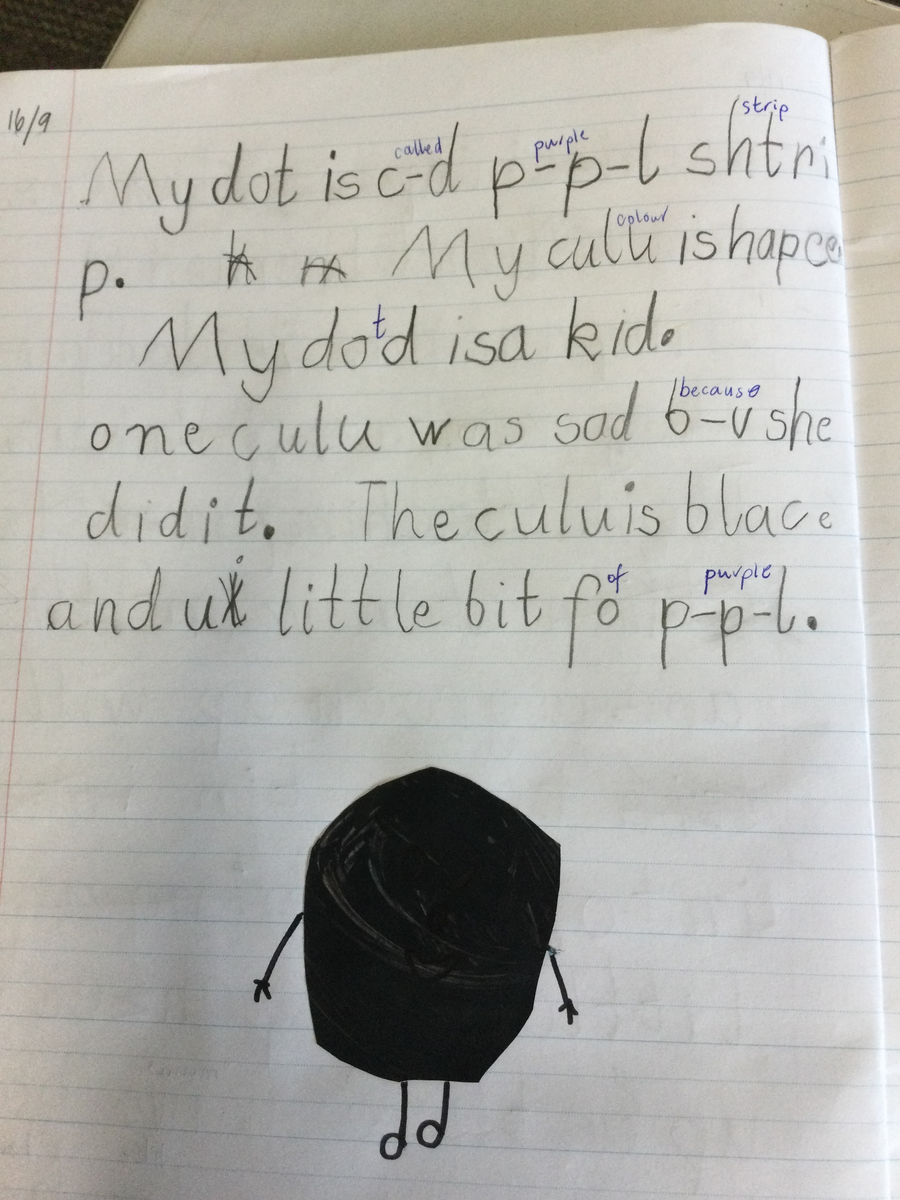 16/9
strip
called purple
My dot is c-d p-p-l shtri
colour
p. My culu is hapce
t
My dotd is a kid.
because
one culu was sad b-v she
did it. The culu is blace
of purple
and u little bit fo p-p-l.